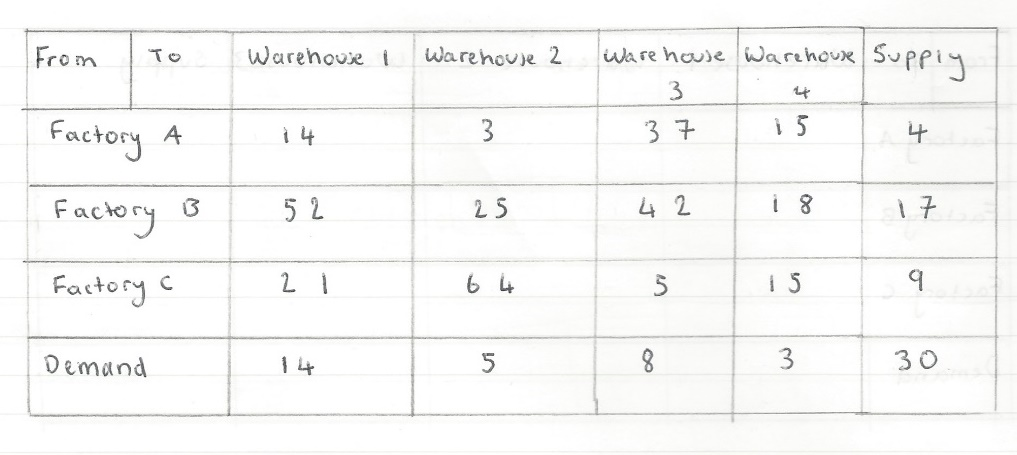 From To Warehouse 1 Warehouse 2 Warehouse 3 Warehouse 4 Supply
Factory A 14 3 37 15 4
Factory B 52 25 42 18 17
Factory C 21 64 5 15 9
Demand 14 5 8 3 30